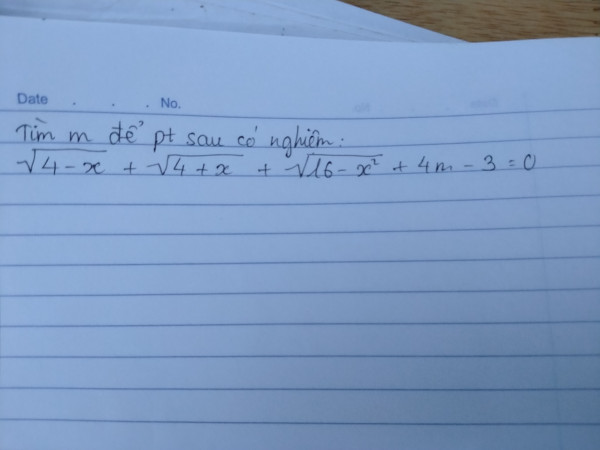 Date . . . No.
Tìm m để pt sau có nghiệm:
√4-x + √4+x + √16-x² + 4m - 3 = 0